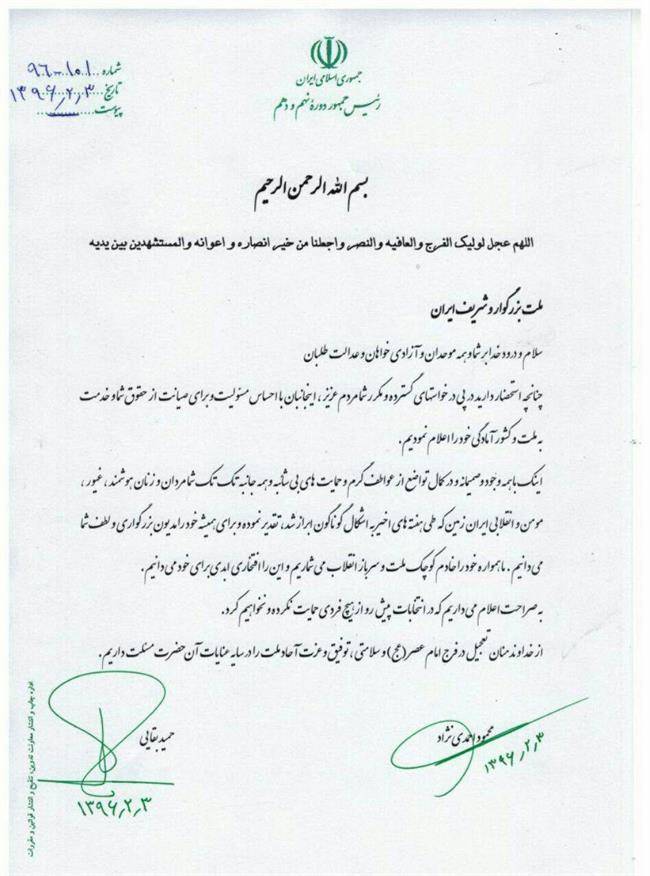 جمهوری اسلامی ایران
رئیس جمهور دورهٔ نهم و دهم
شماره ۹۶۰۰۱۰۱
تاریخ ۱۳۹۶/۲/۳
پیوست
بسم الله الرحمن الرحیم
اللهم عجل لولیک الفرج والعافیه والنصر واجعلنا من خیر انصاره و اعوانه والمستشهدین بین یدیه
ملت بزرگوار و شریف ایران
سلام و درود خدا بر شما و همه موحدان و آزادی خواهان و عدالت طلبان
چنانچه استحضار دارید در پی درخواستهای گسترده و مکرر شما مردم عزیز، اینجانبان با احساس مسئولیت و برای صیانت از حقوق شما و خدمت
به ملت و کشور آمادگی خود را اعلام نمودیم.
اینک با همه وجود و صمیمانه و در کمال تواضع از عواطف گرم و حمایت های بی شائبه و همه جانبه تک تک شما مردان و زنان هوشمند، غیور،
مومن و انقلابی ایران زمین که طی هفته های اخیر به اشکال گوناگون ابراز شد، تقدیر نموده و برای همیشه خود را مدیون بزرگواری و لطف شما
می دانیم. ما همواره خود را خادم کوچک ملت و سرباز انقلاب می شماریم و این را افتخاری ابدی برای خود می دانیم.
به صراحت اعلام می داریم که در انتخابات پیش رو از هیچ فردی حمایت نکرده و نخواهیم کرد.
از خداوند منان تعجیل در فرج امام عصر(عج) و سلامتی، توفیق و عزت آحاد ملت را در سایه عنایات آن حضرت مسئلت داریم.
محمود احمدی نژاد
۱۳۹۶/۲/۳
حمید بقایی
۱۳۹۶/۲/۳
اداره چاپ و انتشار معاونت تدوین، تنقیح و انتشار قوانین و مقررات